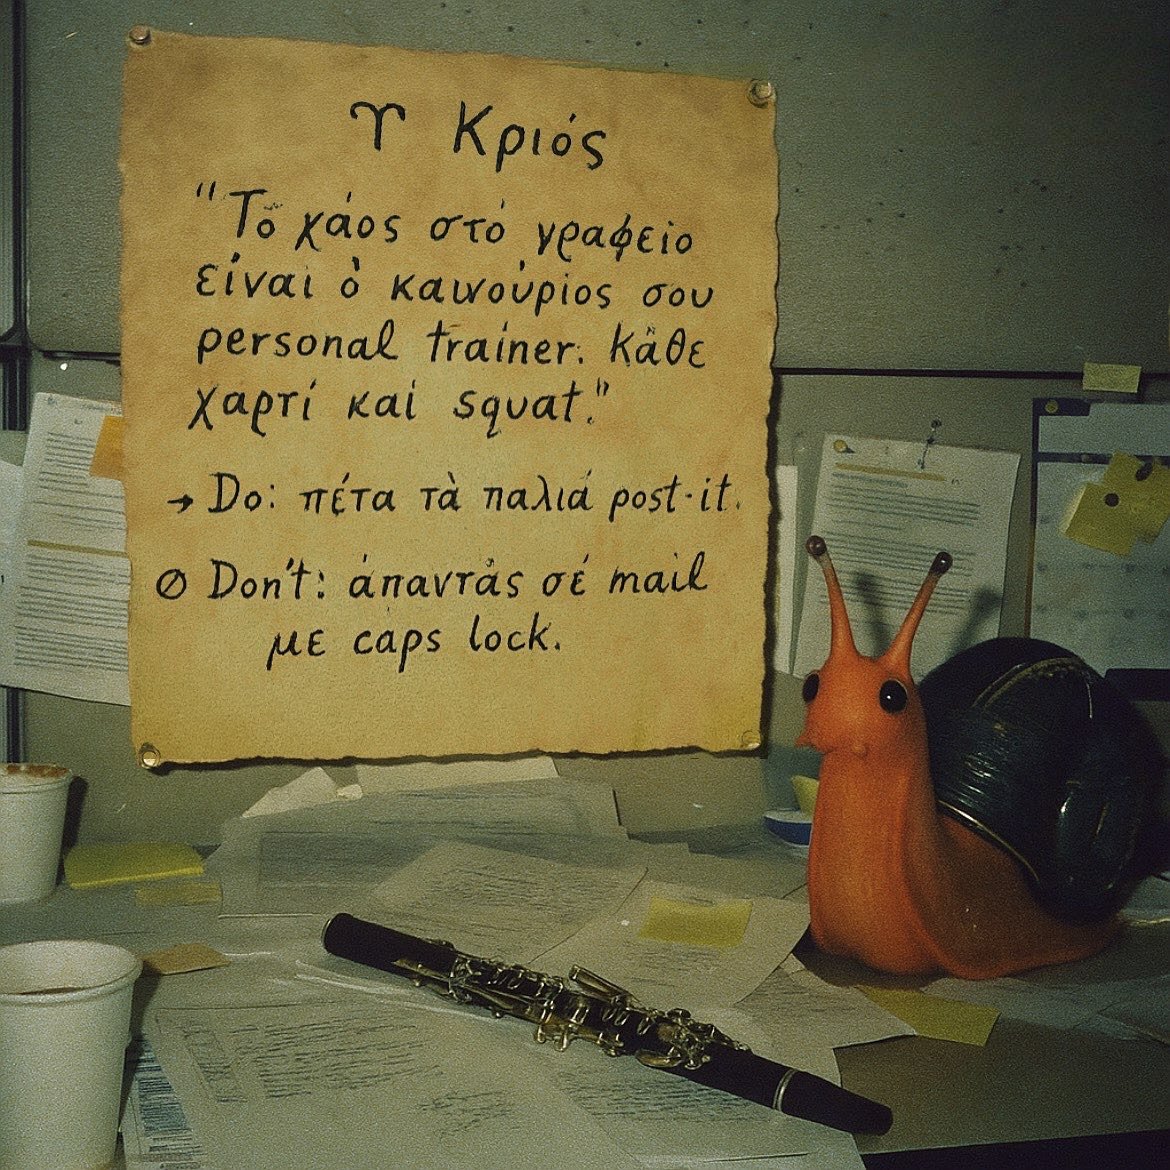 ♈ Κριός
"Τὸ χάος στὸ γραφείο
είναι ὁ καινούριος σου
personal trainer. Κάθε
χαρτί καί squat."
→ Do: πέτα τὰ παλιά post-it.
∅ Don't: ἀπαντᾶς σέ mail
με caps lock.